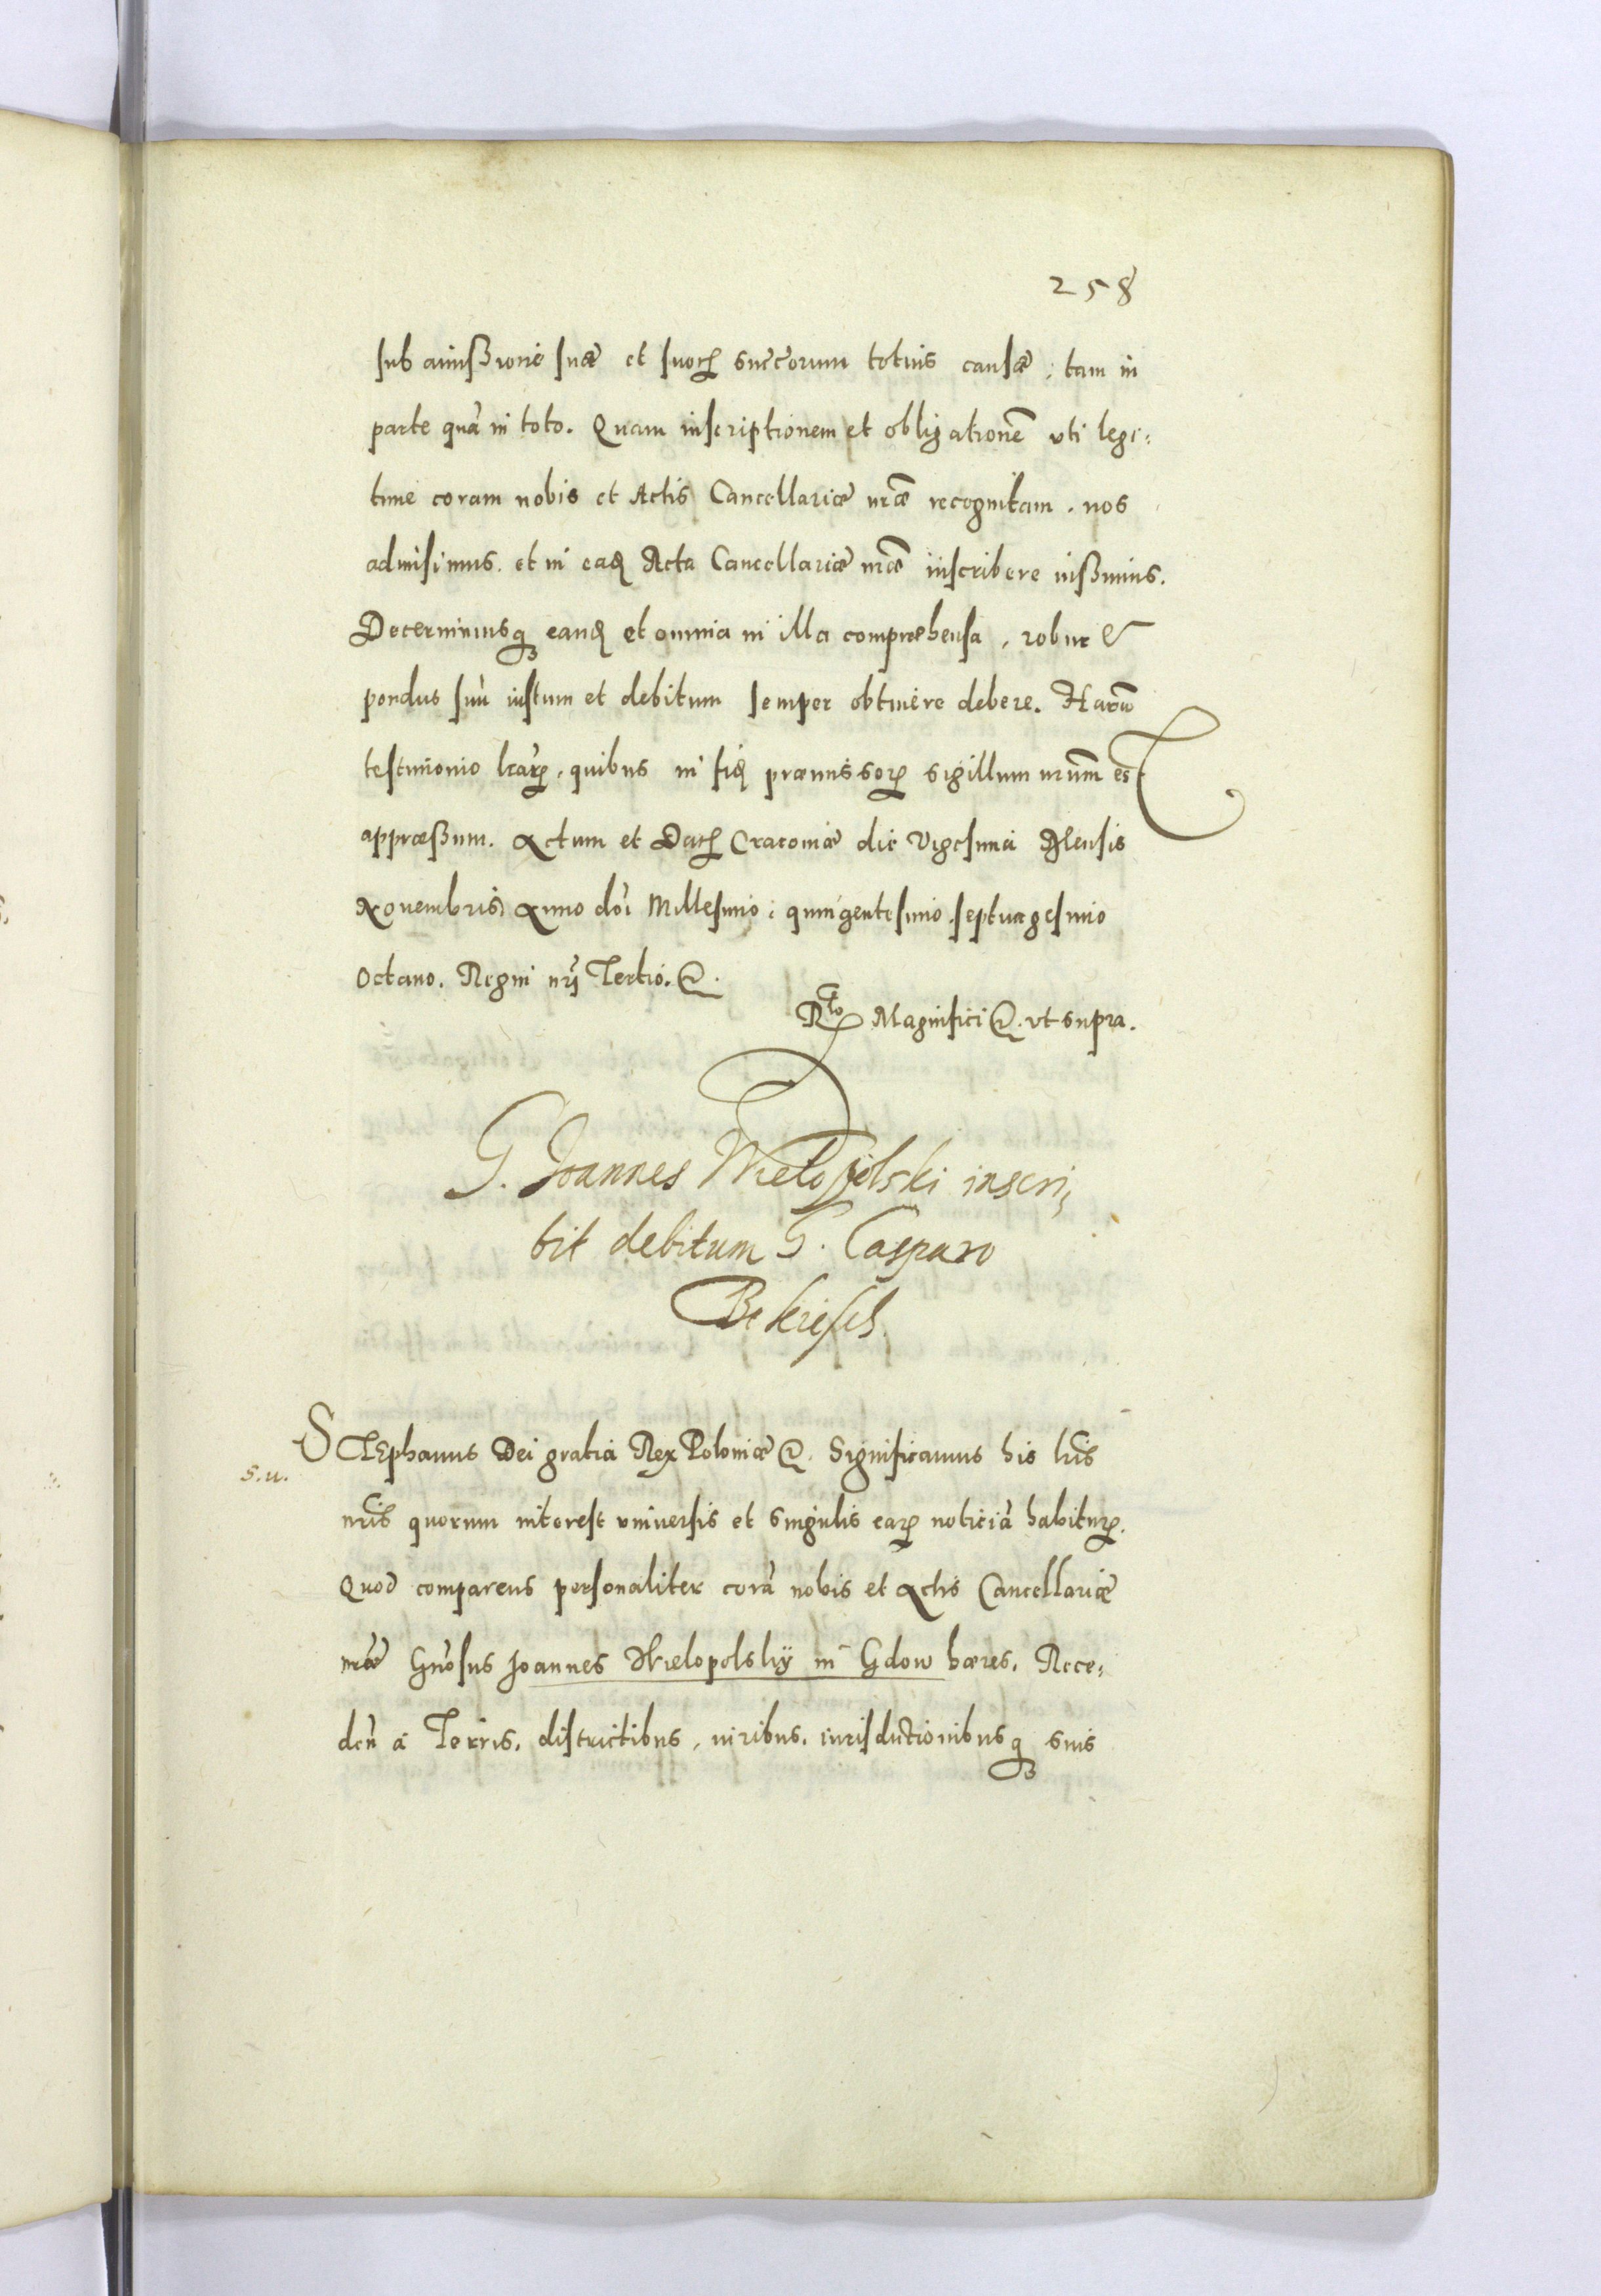 258
sub amissione suae et suor succorum totius causae, tam in
parte quã in toto. Quam inscriptionem et obligationẽ uti legi:
time coram nobis et Actis Cancellariae nrae recognitam, nos
admisimus. et in eaq Acta Cancellariae nrae inscribere iussimus.
Decernimusq eanq et omnia in illa compraehensa, robur &
pondus suũ iustum et debitum semper obtinere debere. Harũ
testimonio lrarp, quibus in fiq praemissorp sigillum nrum est
appraessum. Actum et Dat Cracoviae die Vigesima Mensis
Novembris Anno doi Millesimo quingentesimo septuagesimo
Octavo. Regni nri Tertio. &.
Rlo Magnifici &. ut supra.
G. Joannes Wielopolski inscri,
bit debitum G. Casparo
Bekiesch
STEphanus Dei gratia Rex Poloniae &. Significamus his lris
s.u.
nris quorum interest universis et singulis earp noticiã habiturp.
Quod comparens personaliter corã nobis et Actis Cancellariae
nrae Gnosus Joannes Wielopolskÿ in Gdow haeres. Rece:
den à Terris, districtibus, iuribus, iurisdictionibusq suis